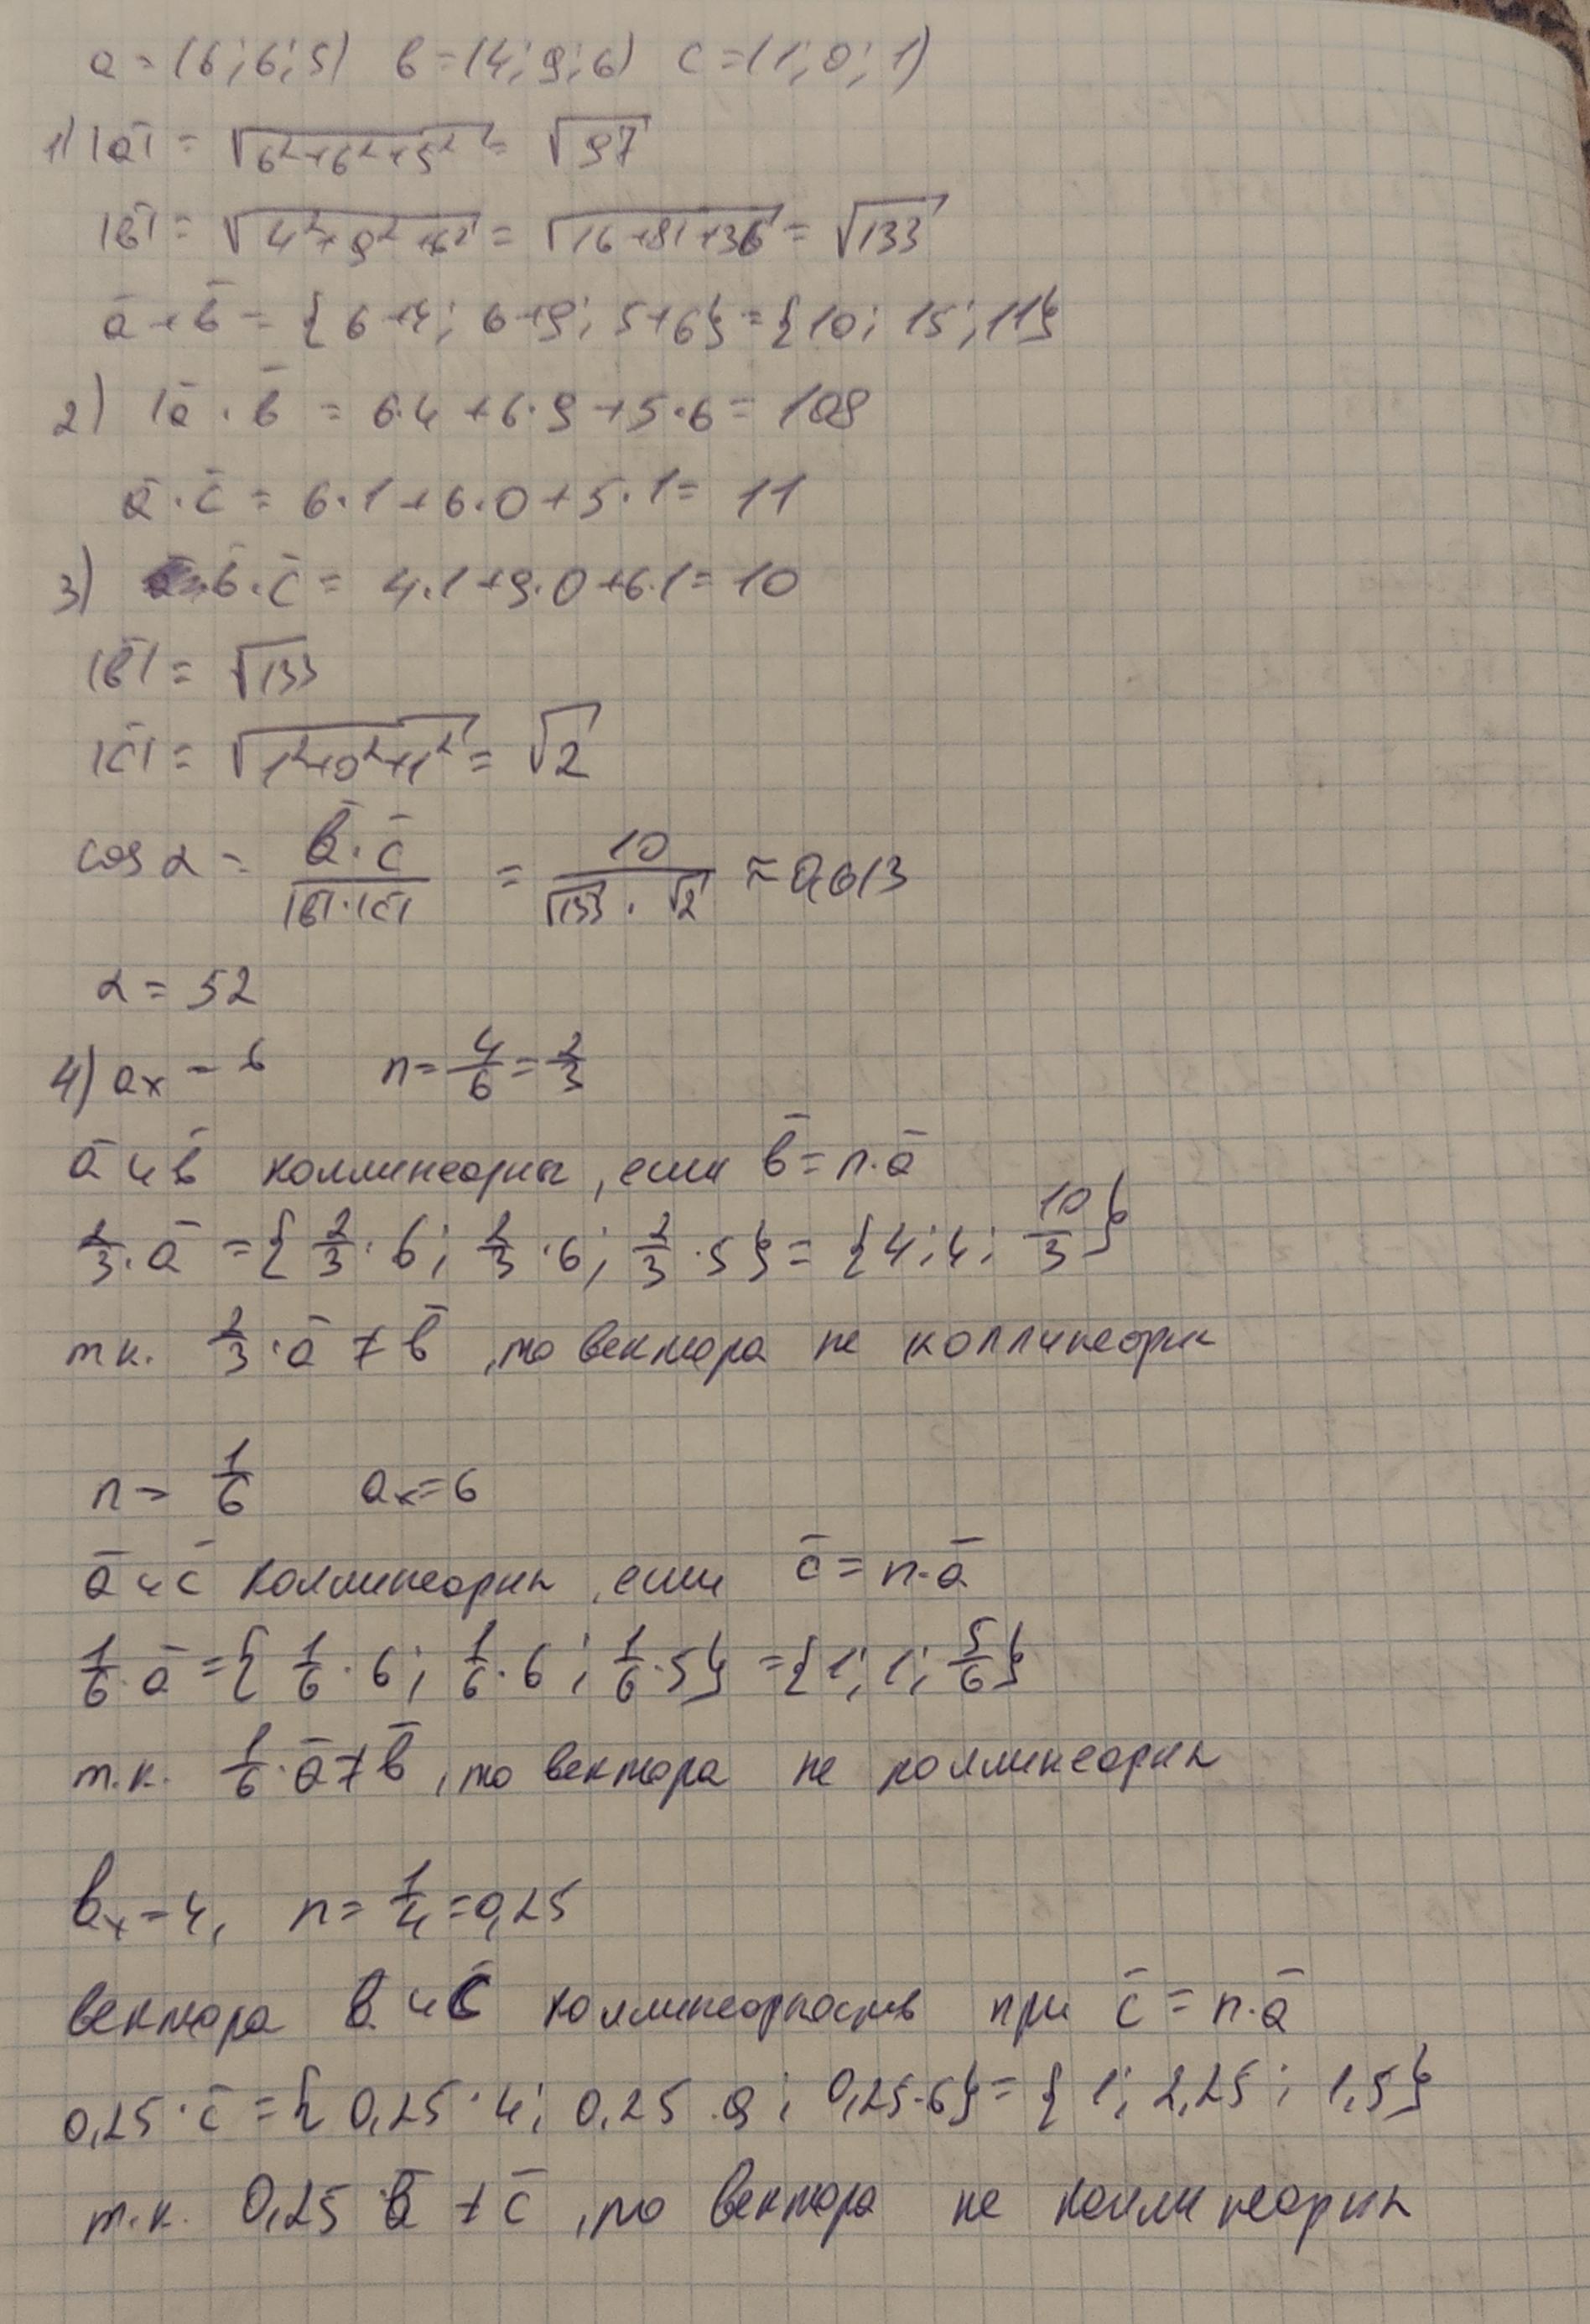 a = (6; 6; 5) в = (4; 9; 6) c = (1; 0; 1)
1) |ā| = √(6²+6²+5²) = √97
|в̄| = √(4²+9²+6²) = √(16+81+36) = √133
ā + в̄ = {6+4; 6+9; 5+6} = {10; 15; 11}
2) |ā · в̄ = 6·4 + 6·9 + 5·6 = 108
ā · c̄ = 6·1 + 6·0 + 5·1 = 11
3) в̄ · c̄ = 4·1 + 9·0 + 6·1 = 10
|в̄| = √133
|c̄| = √(1²+0²+1²) = √2
cos α = (в̄ · c̄)/(|в̄|·|c̄|) = 10/(√133 · √2) ≈ 0,613
α = 52
4) aₓ = 6 n = 4/6 = 2/3
ā и в̄ коллинеарны, если в̄ = n·ā
2/3 · ā = {2/3 · 6; 2/3 · 6; 2/3 · 5} = {4; 4; 10/3}
т.к. 2/3 · ā ≠ в̄, то вектора не коллинеарны
n = 1/6 aₓ = 6
ā и c̄ коллинеарны, если c̄ = n·ā
1/6 · ā = {1/6 · 6; 1/6 · 6; 1/6 · 5} = {1; 1; 5/6}
т.к. 1/6 · ā ≠ в̄, то вектора не коллинеарны
вₓ = 4, n = 1/4 = 0,25
вектора в и c̄ при c̄ = n·ā
0,25 · c̄ = {0,25 · 4; 0,25 · 9; 0,25·6} = {1; 2,25; 1,5}
т.к. 0,25 в̄ ≠ c̄, то вектора не коллинеарны